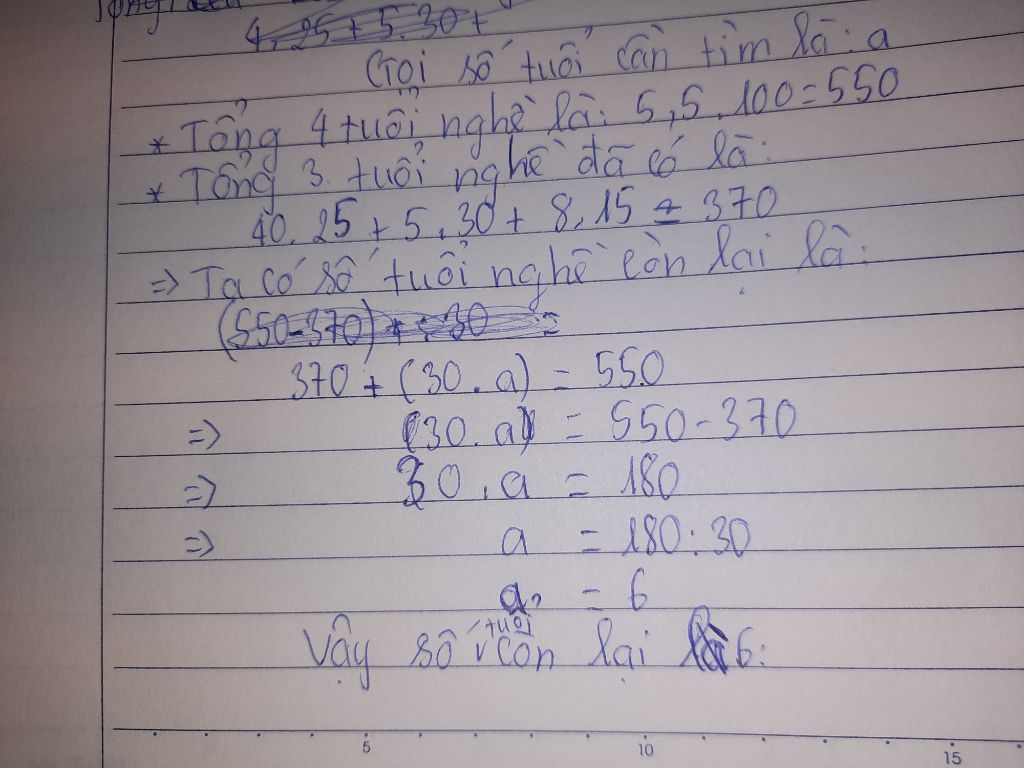 4.25+5.30+
Gọi số tuổi cần tìm là: a
* Tổng 4 tuổi nghề là: 5,5.100=550
* Tổng 3 tuổi nghề đã có là:
40.25+5.30+8.15=370
=> Ta có số tuổi nghề còn lại là:
(550-370)+:30 =
370+(30.a)=550
=> (30.a)=550-370
=> 30.a=180
=> a=180:30
a=6
Vậy số tuổi còn lại là 6:
5 10 15